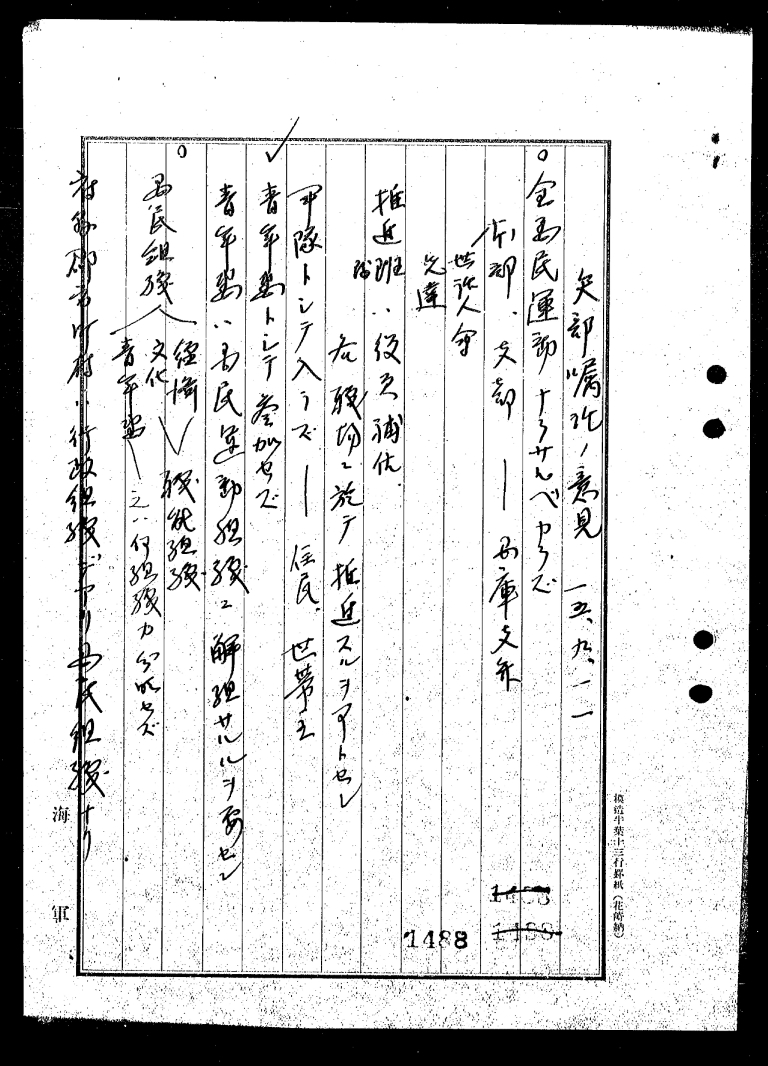 矢部嘱託ノ意見 一五、九、一一
○全国民運動ナラザルベカラズ
本部、支部 ― 兵庫支部
世話人会
先達
推進班ハ役員補佐
各職場ニ於テ推進スルヲ可トセン
軍隊トシテ入ラズ ― 住民、世帯主
青年団トシテ参加セズ
青年団ハ国民運動組織ニ解組サルルヲ要セン
○
国民組織
経済
文化
職能組織
青年団 ― 之ハ何組織カ分明セズ
府県郡市町村ハ行政組織デアリ国民組織ナリ
海軍
模造半葉十三行罫紙
1488
1488
1488